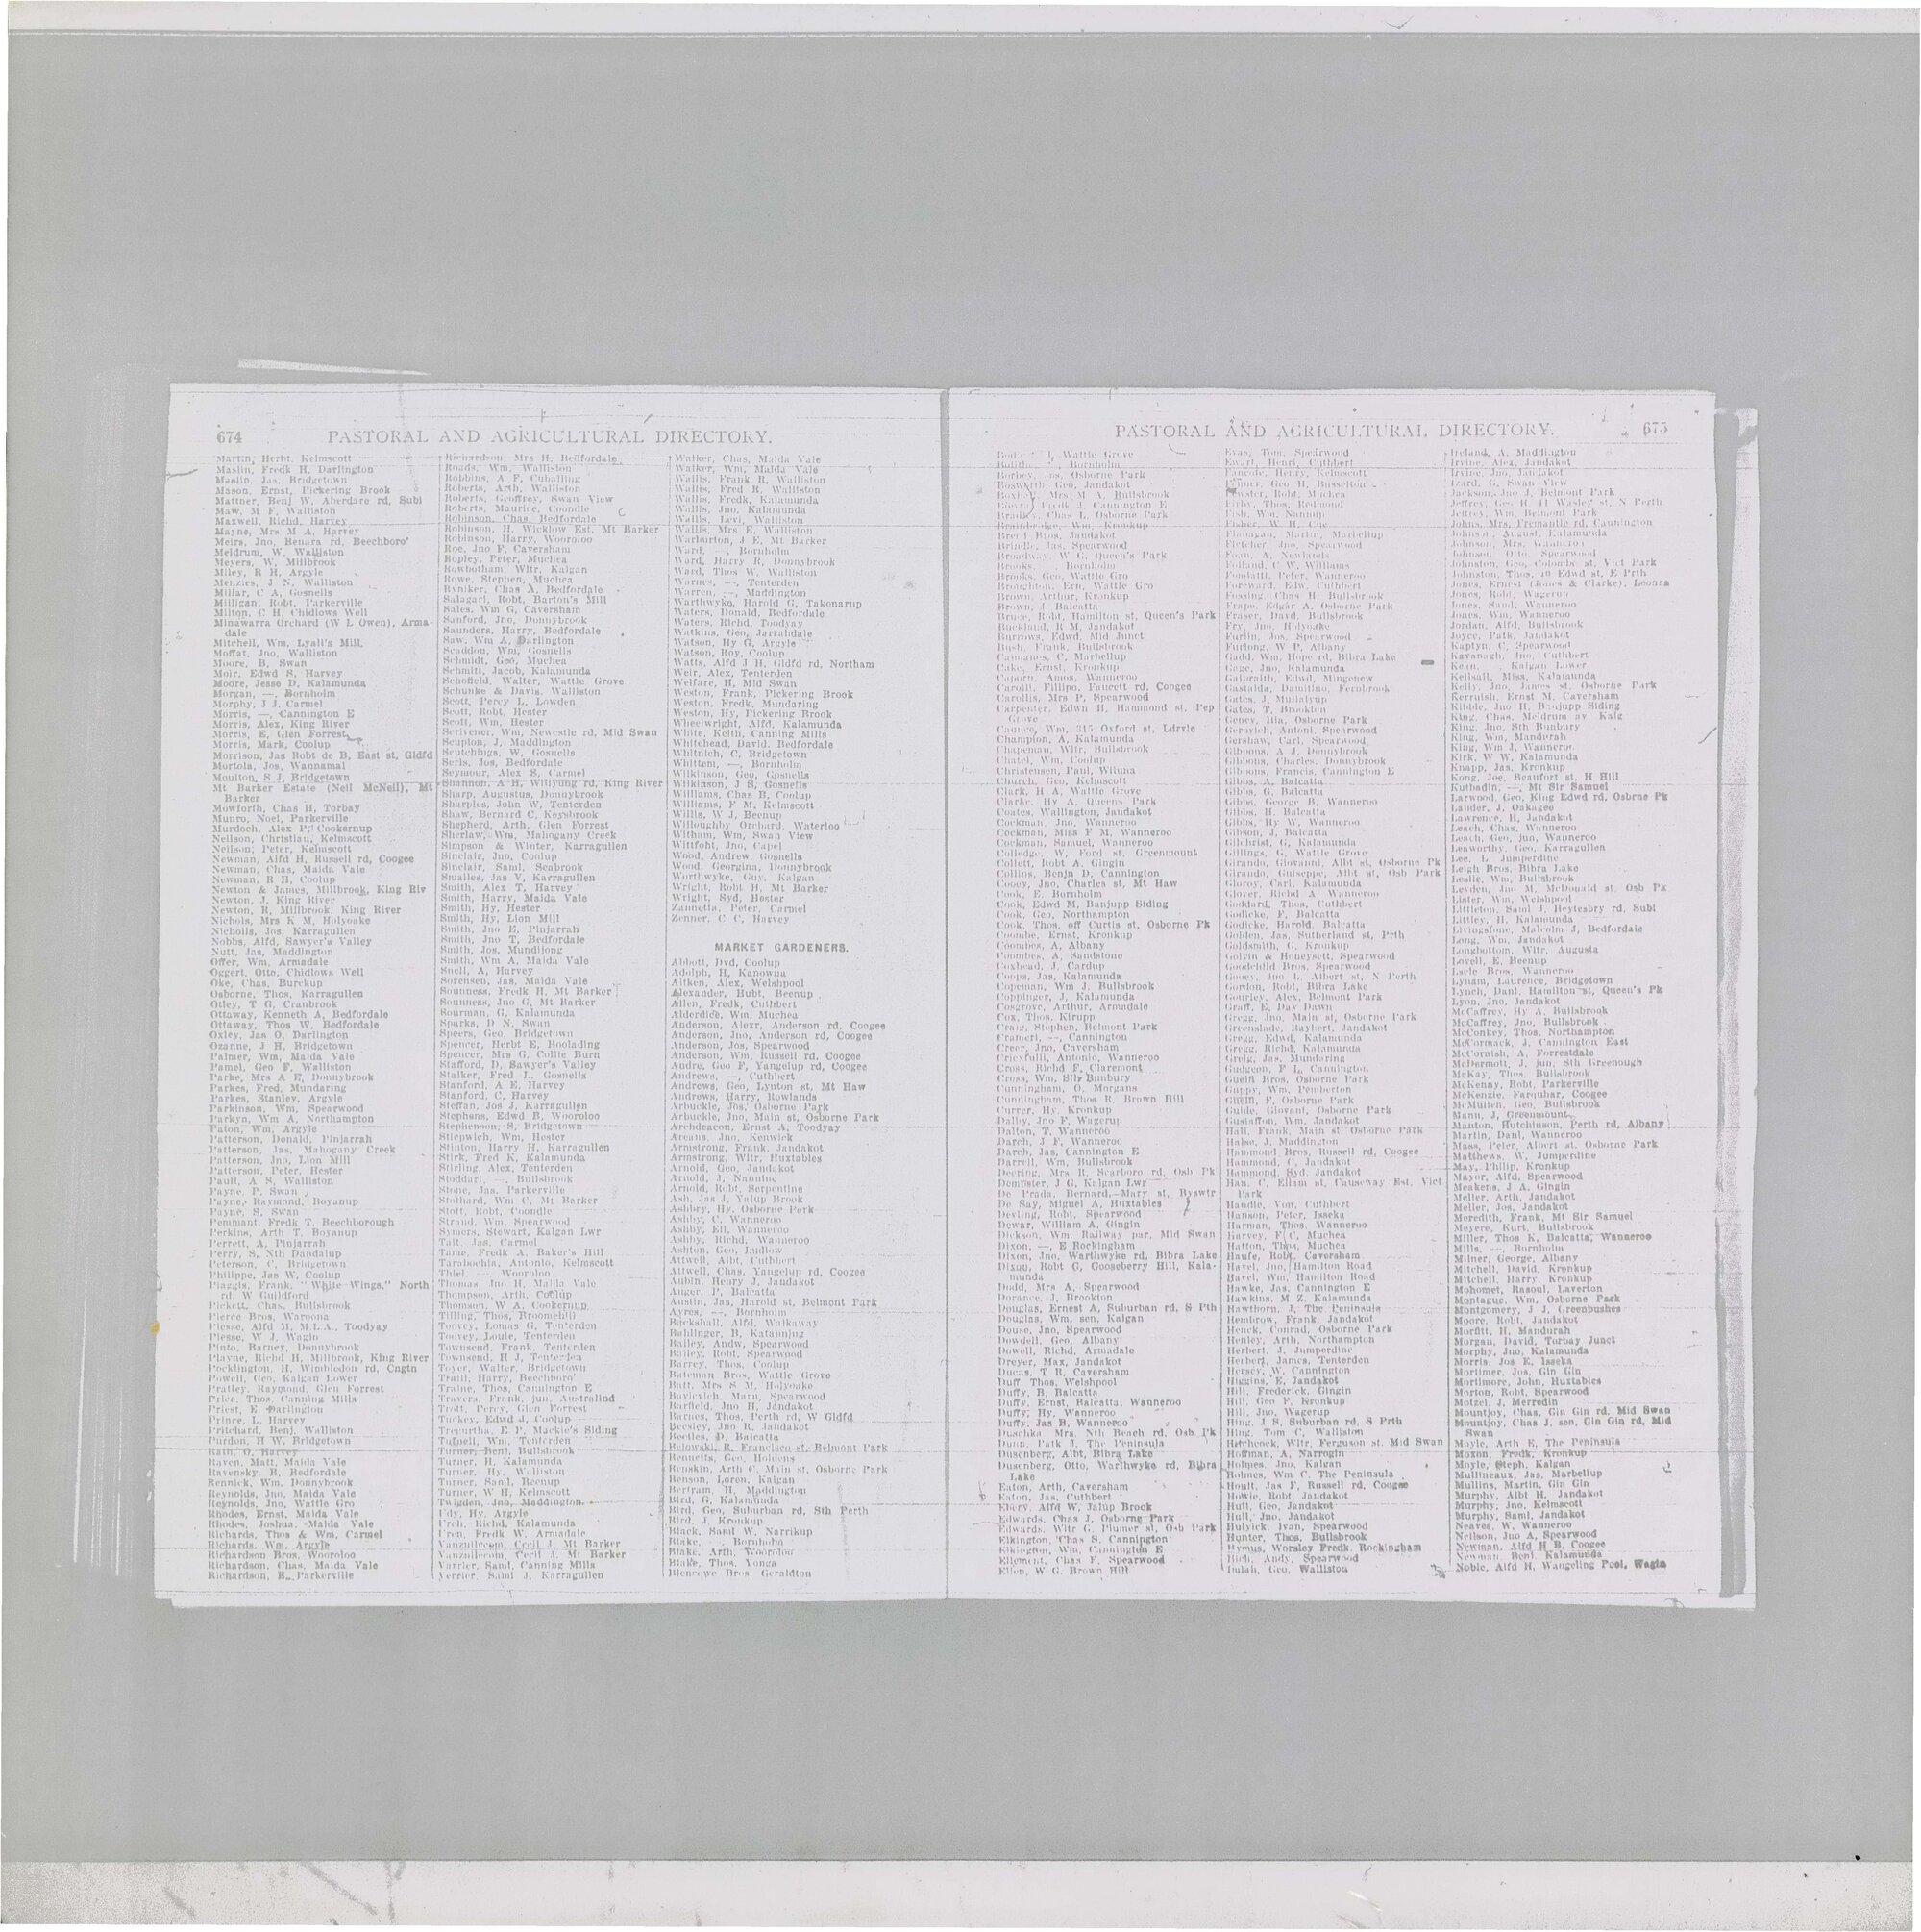 674 PASTORAL AND AGRICULTURAL DIRECTORY.
Martin, Herbt, Kelmscott
Maslin, Fredk H, Darlington
Maslin, Jas, Bridgetown
Mason, Ernst, Pickering Brook
Mattner, Benj W, Aberdare rd, Subi
Maw, M F, Walliston
Maxwell, Richd, Harvey
Mayne, Mrs M A, Harvey
Meirs, Jno, Benara rd, Beechboro'
Meldrum, W, Walliston
Meyers, W, Millbrook
Miley, R H, Argyle
Menzies, J N, Walliston
Millar, C A, Gosnells
Milligan, Robt, Parkerville
Milton, C H, Chidlows Well
Minawarra Orchard (W L Owen), Arma-
dale
Mitchell, Wm, Lyall's Mill
Moffat, Jno, Walliston
Moore, B, Swan
Moir, Edwd S, Harvey
Moore, Jesse D, Kalamunda
Morgan, —, Bornholm
Morphy, J J, Carmel
Morris, —, Cannington E
Morris, Alex, King River
Morris, E, Glen Forrest
Morris, Mark, Coolup
Morrison, Jas Robt de B, East st, Gldfd
Mortola, Jos, Wannamal
Moulton, S J, Bridgetown
Mt Barker Estate (Neil McNeil), Mt
Barker
Mowforth, Chas H, Torbay
Munro, Noel, Parkerville
Murdoch, Alex P, Cookernup
Neilson, Christian, Kelmscott
Neilson, Peter, Kelmscott
Newman, Alfd H, Russell rd, Coogee
Newman, Chas, Maida Vale
Newman, R H, Coolup
Newton & James, Millbrook, King Riv
Newton, J, King River
Newton, R, Millbrook, King River
Nichols, Mrs K M, Holyoake
Nicholls, Jos, Karragullen
Nobbs, Alfd, Sawyer's Valley
Nutt, Jas, Maddington
Offer, Wm, Armadale
Oggert, Otto, Chidlows Well
Oke, Chas, Burekup
Osborne, Thos, Karragullen
Otley, T G, Cranbrook
Ottaway, Kenneth A, Bedfordale
Ottaway, Thos W, Bedfordale
Oxley, Jas O, Darlington
Ozanne, J H, Bridgetown
Palmer, Wm, Maida Vale
Pamel, Geo F, Walliston
Parke, Mrs A E, Donnybrook
Parkes, Fred, Mundaring
Parkes, Stanley, Argyle
Parkinson, Wm, Spearwood
Parkyn, Wm A, Northampton
Paton, Wm, Argyle
Patterson, Donald, Pinjarrah
Patterson, Jas, Mahogany Creek
Patterson, Jno, Lion Mill
Patterson, Peter, Hester
Paull, A S, Walliston
Payne, P, Swan
Payne, Raymond, Boyanup
Payne, S, Swan
Pemmant, Fredk T, Beechborough
Perkins, Arth T, Boyanup
Perrett, A, Pinjarrah
Perry, S, Nth Dandalup
Peterson, C, Bridgetown
Philippe, Jas W, Coolup
Piaggio, Frank, "White Wings," North
rd, W Guildford
Pickett, Chas, Bullsbrook
Pierce Bros, Waroona
Piesse, Alfd M, M.L.A., Toodyay
Piesse, W J, Wagin
Pinto, Barney, Donnybrook
Playne, Richd H, Millbrook, King River
Pockington, H, Wimbledon rd, Cngtn
Powell, Geo, Kalgan Lower
Pratley, Raymond, Glen Forrest
Price, Thos, Canning Mills
Priest, E, Darlington
Prince, L, Harvey
Pritchard, Benj, Walliston
Purdon, H W, Bridgetown
Rath, O, Harvey
Raven, Matt, Maida Vale
Ravensky, B, Bedfordale
Rennick, Wm, Donnybrook
Reynolds, Jno, Maida Vale
Reynolds, Jno, Wattle Gro
Rhodes, Ernst, Maida Vale
Rhodes, Joshua, Maida Vale
Richards, Thos & Wm, Carmel
Richards, Wm, Argyle
Richardson Bros, Wooroloo
Richardson, Chas, Maida Vale
Richardson, E, Parkerville
Richardson, Mrs H, Bedfordale
Roads, Wm, Walliston
Robbins, A F, Cuballing
Roberts, Arth, Walliston
Roberts, Geoffrey, Swan View
Roberts, Maurice, Coondle
Robinson, Chas, Bedfordale
Robinson, H, Wicklow Est, Mt Barker
Robinson, Harry, Wooroloo
Roe, Jno F, Caversham
Ropley, Peter, Muchea
Rowbotham, Wltr, Kalgan
Rowe, Stephen, Muchea
Ryniker, Chas A, Bedfordale
Salagari, Robt, Barton's Mill
Sales, Wm G, Caversham
Sanford, Jno, Donnybrook
Saunders, Harry, Bedfordale
Saw, Wm A, Darlington
Scaddon, Wm, Gosnells
Schmidt, Geo, Muchea
Schmitt, Jacob, Kalamunda
Schofield, Walter, Wattle Grove
Schunke & Davis, Walliston
Scott, Percy L, Lowden
Scott, Robt, Hester
Scott, Wm, Hester
Scrivener, Wm, Newcstle rd, Mid Swan
Scuplon, J, Maddington
Scutchings, W, Gosnells
Seris, Jos, Bedfordale
Seymour, Alex S, Carmel
Shannon, A H, Willyung rd, King River
Sharp, Augustus, Donnybrook
Sharples, John W, Tenterden
Shaw, Bernard C, Keysbrook
Shepherd, Arth, Glen Forrest
Sherlaw, Wm, Mahogany Creek
Simpson & Winter, Karragullen
Sinclair, Jno, Coolup
Sinclair, Saml, Seabrook
Smalles, Jas V, Karragullen
Smith, Alex T, Harvey
Smith, Harry, Maida Vale
Smith, Hy, Hester
Smith, Hy, Lion Mill
Smith, Jno E, Pinjarrah
Smith, Jno T, Bedfordale
Smith, Jos, Mundijong
Smith, Wm A, Maida Vale
Snell, A, Harvey
Sorensen, Jas, Maida Vale
Sounness, Fredk H, Mt Barker
Sounness, Jno G, Mt Barker
Sourman, G, Kalamunda
Sparks, D N, Swan
Speers, Geo, Bridgetown
Spencer, Herbt E, Boolading
Spencer, Mrs G, Collie Burn
Stafford, D, Sawyer's Valley
Stalker, Fred L, Gosnells
Stanford, A E, Harvey
Stanford, C, Harvey
Steffan, Jos J, Karragullen
Stephens, Edwd B, Wooroloo
Stephenson, S, Bridgetown
Stiepwich, Wm, Hester
Stinton, Harry H, Karragullen
Stirk, Fred K, Kalamunda
Stirling, Alex, Tenterden
Stoddart, —, Bullsbrook
Stone, Jas, Parkerville
Stothard, Wm C, Mt Barker
Stott, Robt, Coondle
Strand, Wm, Spearwood
Symers, Stewart, Kalgan Lwr
Tait, Jas, Carmel
Tame, Fredk A, Baker's Hill
Tarabochia, Antonio, Kelmscott
Thiel, —, Wooroloo
Thomas, Jno H, Maida Vale
Thompson, Arth, Coolup
Thomson, W A, Cookernup
Tilling, Thos, Broomehill
Toovey, Lomas G, Tenterden
Toovey, Louie, Tenterden
Townsend, Frank, Tenterden
Townsend, H J, Tenterden
Toyer, Walter, Bridgetown
Traill, Harry, Beechboro'
Traine, Thos, Cannington E
Travers, Frank, jun, Australind
Trott, Percy, Glen Forrest
Tuckey, Edwd J, Coolup
Trepurtha, E P, Mackie's Siding
Tufnell, Wm, Tenterden
Turner, Benj, Bullsbrook
Turner, H, Kalamunda
Turner, Hy, Walliston
Turner, Saml, Beenup
Turner, W H, Kelmscott
Twigden, Jno, Maddington
Udy, Hy, Argyle
Urch, Richd, Kalamunda
Uren, Fredk W, Armadale
Vanzuilecom, Cecil J, Mt Barker
Vanzuilecom, Cecil J, Mt Barker
Varrier, Saml, Canning Mills
Verrier, Saml J, Karragullen
Walker, Chas, Maida Vale
Walker, Wm, Maida Vale
Wallis, Frank R, Walliston
Wallis, Fred R, Walliston
Wallis, Fredk, Kalamunda
Wallis, Jno, Kalamunda
Wallis, Levi, Walliston
Wallis, Mrs E, Walliston
Warburton, J E, Mt Barker
Ward, —, Bornholm
Ward, Harry R, Donnybrook
Ward, Thos W, Walliston
Warnes, —, Tenterden
Warren, —, Maddington
Warthwyke, Harold G, Takonarup
Waters, Donald, Bedfordale
Waters, Richd, Toodyay
Watkins, Geo, Jarrahdale
Watson, Hy G, Argyle
Watson, Roy, Coolup
Watts, Alfd J H, Gldfd rd, Northam
Weir, Alex, Tenterden
Welfare, H, Mid Swan
Weston, Frank, Pickering Brook
Weston, Fredk, Mundaring
Weston, Hy, Pickering Brook
Wheelwright, Alfd, Kalamunda
White, Keith, Canning Mills
Whitehead, David, Bedfordale
Whitnich, C, Bridgetown
Whitten, —, Bornholm
Wilkinson, Geo, Gosnells
Wilkinson, J S, Gosnells
Williams, Chas B, Coolup
Williams, F M, Kelmscott
Willis, W J, Beenup
Willoughby Orchard, Waterloo
Witham, Wm, Swan View
Wittfoht, Jno, Capel
Wood, Andrew, Gosnells
Wood, Georgina, Donnybrook
Worthwyke, Guy, Kalgan
Wright, Robt H, Mt Barker
Wright, Syd, Hester
Zannetta, Peter, Carmel
Zenner, C C, Harvey
MARKET GARDENERS.
Abbott, Dvd, Coolup
Adolph, H, Kanowna
Aitken, Alex, Welshpool
Alexander, Hubt, Beenup
Allen, Fredk, Cuthbert
Alderdice, Wm, Muchea
Anderson, Alexr, Anderson rd, Coogee
Anderson, Jno, Anderson rd, Coogee
Anderson, Jos, Spearwood
Anderson, Wm, Russell rd, Coogee
Andre, Geo F, Yangelup rd, Coogee
Andrews, —, Cuthbert
Andrews, Geo, Lynton st, Mt Haw
Andrews, Harry, Rowlands
Arbuckle, Jos, Osborne Park
Arbuckle, Jno, Main st, Osborne Park
Archdeacon, Ernst A, Toodyay
Arcans, Jno, Kenwick
Armstrong, Frank, Jandakot
Armstrong, Wltr, Huxtables
Arnold, Geo, Jandakot
Arnold, J, Nannine
Arnold, Robt, Serpentine
Ash, Jas J, Yalup Brook
Ashbry, Hy, Osborne Park
Ashby, C, Wanneroo
Ashby, Ell, Wanneroo
Ashby, Richd, Wanneroo
Ashton, Geo, Ludlow
Attwell, Albt, Cuthbert
Attwell, Chas, Yangelup rd, Coogee
Aubin, Henry J, Jandakot
Auger, P, Balcatta
Austin, Jas, Harold st, Belmont Park
Ayres, —, Bornholm
Backshall, Alfd, Walkaway
Bahlinger, B, Katanning
Bailey, Andw, Spearwood
Bailey, Robt, Spearwood
Barrey, Thos, Coolup
Bateman Bros, Wattle Grove
Batt, Mrs S M, Holyoake
Bavicvich, Marn, Spearwood
Barfield, Jno H, Jandakot
Barnes, Thos, Perth rd, W Gldfd
Beesley, Jno R, Jandakot
Beetles, D, Balcatta
Belowski, R, Francisco st, Belmont Park
Bennetts, Geo, Holdens
Benskin, Arth C, Main st, Osborne Park
Benson, Loren, Kalgan
Bertram, H, Maddington
Bird, G, Kalamunda
Bird, Geo, Suburban rd, Sth Perth
Bird, J, Kronkup
Black, Saml W, Narrikup
Blake, —, Bornholm
Blake, Arth, Wooroloo
Blake, Thos, Yonga
Blencowe Bros, Geraldton
PASTORAL AND AGRICULTURAL DIRECTORY. 675
J, Wattle Grove
Bornholm
Borbey, Jos, Osborne Park
Bosworth, Geo, Jandakot
Mrs M A, Bullsbrook
Fredk J, Cannington E
Chas L, Osborne Park
Wm, Kronkup
Breed Bros, Jandakot
Brindle, Jas, Spearwood
Broadway, W G, Queen's Park
Brooks, —, Bornholm
Brooks, Geo, Wattle Gro
Broughton, Ern, Wattle Gro
Brown, Arthur, Kronkup
Brown, J, Balcatta
Bruce, Robt, Hamilton st, Queen's Park
Buckland, R M, Jandakot
Burrows, Edwd, Mid Junct
Bush, Frank, Bullsbrook
C, Marbellup
Cake, Ernst, Kronkup
Caporn, Amos, Wanneroo
Carolli, Fillipo, Faucett rd, Coogee
Carollis, Mrs P, Spearwood
Carpenter, Edwn H, Hammond st, Pep
Grove
Caunce, Wm, 315 Oxford st, Ldrvle
Champion, A, Kalamunda
Chapeman, Wltr, Bullsbrook
Chatel, Wm, Coolup
Christensen, Paul, Wiluna
Church, Geo, Kelmscott
Clark, H A, Wattle Grove
Clarke, Hy A, Queens Park
Coates, Wallington, Jandakot
Cockman, Jno, Wanneroo
Cockman, Miss F M, Wanneroo
Cockman, Samuel, Wanneroo
Colledge, W, Ford st, Greenmount
Collett, Robt A, Gingin
Collins, Benjn D, Cannington
Cooey, Jno, Charles st, Mt Haw
Cook, E, Bornholm
Cook, Edwd M, Banjupp Siding
Cook, Geo, Northampton
Cook, Thos, off Curtis st, Osborne Pk
Coombe, Ernst, Kronkup
Coombes, A, Albany
Coombes, A, Sandstone
Coxhead, J, Cardup
Coops, Jas, Kalamunda
Copeman, Wm J, Bullsbrook
Coppinger, J, Kalamunda
Cosgrove, Arthur, Armadale
Cox, Thos, Kirupp
Craig, Stephen, Belmont Park
Crameri, —, Cannington
Creer, Jno, Caversham
Criexfulli, Antonio, Wanneroo
Cross, Richd F, Claremont
Cross, Wm, Sth Bunbury
Cunningham, G, Morgans
Cunningham, Thos R, Brown Hill
Currer, Hy, Kronkup
Dalby, Jno F, Wagerup
Dalton, T, Wanneroo
Darch, J F, Wanneroo
Darch, Jas, Cannington E
Darrell, Wm, Bullsbrook
Deering, Mrs R, Scarboro rd, Osb Pk
Dempster, J G, Kalgan Lwr
De Prada, Bernard, Mary st, Byswtr
De Say, Miguel A, Huxtables
Devling, Robt, Spearwood
Dewar, William A, Gingin
Dickson, Wm, Railway par, Mid Swan
Dixon, —, E Rockingham
Dixon, Jno, Warthwyke rd, Bibra Lake
Dixon, Robt G, Gooseberry Hill, Kala-
munda
Dodd, Mrs A, Spearwood
Dorance, J, Brookton
Douglas, Ernest A, Suburban rd, S Pth
Douglas, Wm, sen, Kalgan
Douse, Jno, Spearwood
Dowdell, Geo, Albany
Dowell, Richd, Armadale
Dreyer, Max, Jandakot
Ducas, T R, Caversham
Duff, Thos, Welshpool
Duffy, B, Balcatta
Duffy, Ernst, Balcatta, Wanneroo
Duffy, Hy, Wanneroo
Duffy, Jas B, Wanneroo
Duschka, Mrs, Nth Beach rd, Osb Pk
Dunn, Patk J, The Peninsula
Dusenberg, Albt, Bibra Lake
Dusenberg, Otto, Warthwyke rd, Bibra
Lake
Eaton, Arth, Caversham
Eaton, Jas, Cuthbert
Ebery, Alfd W, Jalup Brook
Edwards, Chas J, Osborne Park
Edwards, Wltr G, Plumer st, Osb Park
Elkington, Chas S, Cannington
Elkington, Wm, Cannington E
Ellement, Chas F, Spearwood
Ellen, W G, Brown Hill
Evas, Tom, Spearwood
Ewart, Henri, Cuthbert
Fancote, Henry, Kelmscott
Geo H, Busselton
Robt, Muchea
Firby, Thos, Redmond
Fish, Wm, Nannup
Fisher, W H, Cue
Flanagan, Martin, Marbellup
Fletcher, Jno, Spearwood
A, Newlands
Folland, C W, Williams
Fondatti, Peter, Wanneroo
Foreward, Edw, Cuthbert
Fossing, Chas H, Bullsbrook
Frape, Edgar A, Osborne Park
Fraser, Davd, Bullsbrook
Fry, Jno, Holyoake
Furlin, Jos, Spearwood
Furlong, W P, Albany
Gadd, Wm, Hope rd, Bibra Lake
Gage, Jno, Kalamunda
Galbraith, Edwd, Mingenew
Gastalda, Damitino, Fernbrook
Gates, J, Mullalyup
Gates, T, Brookton
Geney, Ilia, Osborne Park
Gerovich, Antoni, Spearwood
Gershaw, Carl, Spearwood
Gibbons, A J, Donnybrook
Gibbons, Charles, Donnybrook
Gibbons, Francis, Cannington E
Gibbs, A, Balcatta
Gibbs, G, Balcatta
Gibbs, George B, Wanneroo
Gibbs, H, Balcatta
Gibbs, Hy W, Wanneroo
Gibson, J, Balcatta
Gilchrist, G, Kalamunda
Gillings, G, Wattle Grove
Girando, Giovanni, Albt st, Osborne Pk
Girando, Guiseppe, Albt st, Osb Park
Gloroy, Carl, Kalamunda
Glover, Richd A, Wanneroo
Goddard, Thos, Cuthbert
Godlcke, F, Balcatta
Godlcke, Harold, Balcatta
Golden, Jas, Sutherland st, Prth
Goldsmith, G, Kronkup
Golvin & Honeysett, Spearwood
Goodchild Bros, Spearwood
Gooey, Jno L, Albert st, N Perth
Gordon, Robt, Bibra Lake
Gourley, Alex, Belmont Park
Graff, E, Day Dawn
Gregg, Jno, Main st, Osborne Park
Greenslade, Raybert, Jandakot
Gregg, Edwd, Kalamunda
Gregg, Richd, Kalamunda
Greig, Jas, Mundaring
Gudgeon, F L, Cannington
Guelfi Bros, Osborne Park
Guppy, Wm, Pemberton
Guelfi, F, Osborne Park
Guide, Giovant, Osborne Park
Gustaffon, Wm, Jandakot
Hall, Frank, Main st, Osborne Park
Halse, J, Maddington
Hammond Bros, Russell rd, Coogee
Hammond, C, Jandakot
Hammond, Syd, Jandakot
Han, C, Ellam st, Causeway Est, Vict
Park
Handle, Vom, Cuthbert
Hanson, Peter, Isseka
Harman, Thos, Wanneroo
Harvey, F C, Muchea
Hatton, Thos, Muchea
Haufe, Robt, Caversham
Havel, Jno, Hamilton Road
Havel, Wm, Hamilton Road
Hawke, Jas, Cannington E
Hawkins, M Z, Kalamunda
Hawthorn, J, The Peninsula
Hembrow, Frank, Jandakot
Henck, Conrad, Osborne Park
Henley, Arth, Northampton
Herbert, J, Jumperdine
Herbert, James, Tenterden
Hersey, W, Cannington
Higgins, E, Jandakot
Hill, Frederick, Gingin
Hill, Geo F, Kronkup
Hill, Jno, Wagerup
Hing, J S, Suburban rd, S Prth
Hing, Tom C, Walliston
Hitchcock, Wltr, Ferguson st, Mid Swan
Hoffman, A, Narrogin
Holmes, Jno, Kalgan
Holmes, Wm C, The Peninsula
Hoult, Jas F, Russell rd, Coogee
Howie, Robt, Jandakot
Hull, Geo, Jandakot
Hull, Jno, Jandakot
Hulyick, Ivan, Spearwood
Hunter, Thos, Bullsbrook
Hymus, Worsley Fredk, Rockingham
Ilich, Andy, Spearwood
Imlah, Geo, Walliston
Ireland, A, Maddington
Irvine, Alex, Jandakot
Irvine, Jno, Jandakot
Izard, G, Swan View
Jackson, Jno J, Belmont Park
Jeffrey, Geo H, 11 Wasler st, N Perth
Jeffrey, Wm, Belmont Park
Johns, Mrs, Fremantle rd, Cannington
Johnson, August, Kalamunda
Johnson, Mrs, Wanneroo
Johnson, Otto, Spearwood
Johnston, Geo, Colombo st, Vict Park
Johnston, Thos, 10 Edwd st, E Prth
Jones, Ernest (Jones & Clarke), Leonra
Jones, Robt, Wagerup
Jones, Saml, Wanneroo
Jones, Wm, Wanneroo
Jordan, Alfd, Bullsbrook
Joyce, Patk, Jandakot
Kaptyn, C, Spearwood
Kavanagh, Jno, Cuthbert
Kean, —, Kalgan Lower
Kellsall, Miss, Kalamunda
Kelly, Jno, James st, Osborne Park
Kerruish, Ernst M, Caversham
Kibble, Jno H, Banjupp Siding
King, Chas, Meldrum av, Kalg
King, Jno, Sth Bunbury
King, Wm, Mandurah
King, Wm J, Wanneroo
Kirk, W W, Kalamunda
Knapp, Jas, Kronkup
Kong, Joe, Beaufort st, H Hill
Kutbadin, —, Mt Sir Samuel
Larwood, Geo, King Edwd rd, Osbrne Pk
Lauder, J, Oakagee
Lawrence, H, Jandakot
Leach, Chas, Wanneroo
Leach, Geo, jun, Wanneroo
Leaworthy, Geo, Karragullen
Lee, L, Jumperdine
Leigh Bros, Bibra Lake
Leslie, Wm, Bullsbrook
Leyden, Jno M, McDonald st, Osb Pk
Lister, Wm, Welshpool
Littleton, Saml J, Heytesbry rd, Subi
Littley, H, Kalamunda
Livingstone, Malcolm J, Bedfordale
Long, Wm, Jandakot
Longbottom, Wltr, Augusta
Lovell, E, Beenup
Lucle Bros, Wanneroo
Lynam, Laurence, Bridgetown
Lynch, Danl, Hamilton st, Queen's Pk
Lyon, Jno, Jandakot
McCaffrey, Hy A, Bullsbrook
McCaffrey, Jno, Bullsbrook
McConkey, Thos, Northampton
McCormack, J, Cannington East
McCornish, A, Forrestdale
McDermott, J, jun, Sth Greenough
McKay, Thos, Bullsbrook
McKenny, Robt, Parkerville
McKenzie, Farquhar, Coogee
McMullen, Geo, Bullsbrook
Mann, J, Greenmount
Manton, Hutchinson, Perth rd, Albany
Martin, Danl, Wanneroo
Mass, Peter, Albert st, Osborne Park
Matthews, W, Jumperdine
May, Philip, Kronkup
Mayor, Alfd, Spearwood
Meakens, J A, Gingin
Meller, Arth, Jandakot
Meller, Jos, Jandakot
Meredith, Frank, Mt Sir Samuel
Meyere, Kurt, Bullsbrook
Miller, Thos K, Balcatta, Wanneroo
Mills, —, Bornholm
Milner, George, Albany
Mitchell, David, Kronkup
Mitchell, Harry, Kronkup
Mohomet, Rasoul, Laverton
Montague, Wm, Osborne Park
Montgomery, J J, Greenbushes
Moore, Robt, Jandakot
Morfitt, H, Mandurah
Morgan, David, Torbay Junct
Morphy, Jno, Kalamunda
Morris, Jos E, Isseka
Mortimer, Jos, Gin Gin
Mortimore, John, Huxtables
Morton, Robt, Spearwood
Motzel, J, Merredin
Mountjoy, Chas, Gin Gin rd, Mid Swan
Mountjoy, Chas J, sen, Gin Gin rd, Mid
Swan
Moyle, Arth E, The Peninsula
Moxon, Fredk, Kronkup
Moyle, Steph, Kalgan
Mullineaux, Jas, Marbellup
Mullins, Martin, Gin Gin
Murphy, Albt H, Jandakot
Murphy, Jno, Kelmscott
Murphy, Saml, Jandakot
Neaves, W, Wanneroo
Neilson, Jno A, Spearwood
Newman, Alfd H B, Coogee
Newman, Benj, Kalamunda
Noble, Alfd H, Wangeling Pool, Wagin